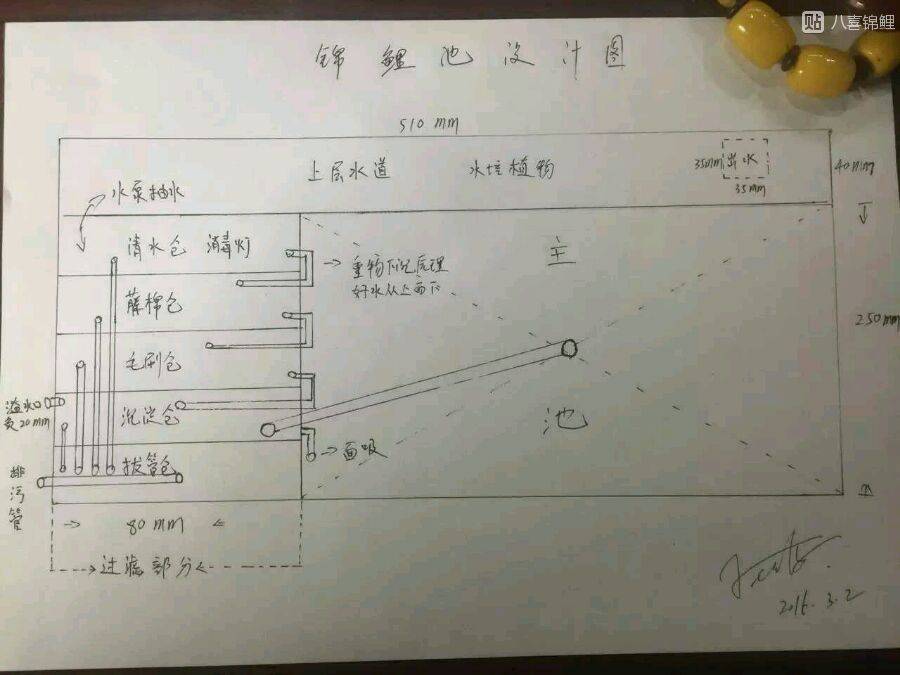 贴 八喜锦鲤
锦鲤池设计图
510 mm
上层水道 水培植物
350mm 出水
35mm
40mm
水泵抽水
清水仓 消毒灯
重物下沉原理
好水从上面下
主
藤棉仓
250mm
毛刷仓
溢水口
负20mm
沉淀仓
池
面吸
拔管仓
排污管
80 mm
过滤部分
2016.3.2